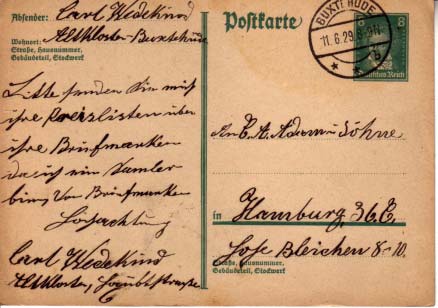 Absender: Carl Wedekind
Wohnort: Altkloster-Buxtehude
Straße, Hausnummer,
Gebäudeteil, Stockwerk
Postkarte
BUXTEHUDE
11.6.29.8-9N
8
8
Deutsches Reich
Bitte senden Sie mich
ihre Preislisten über
ihre Briefmarken
da ich ein Samler
bin, Von Briefmarken
Hochachtung
Carl Wedekind
Altkloster, Hauptstrasse
An E. A. Adam Söhne
in Hamburg, 36. E.
Hohe Bleichen 8-10.
Straße, Hausnummer,
Gebäudeteil, Stockwerk